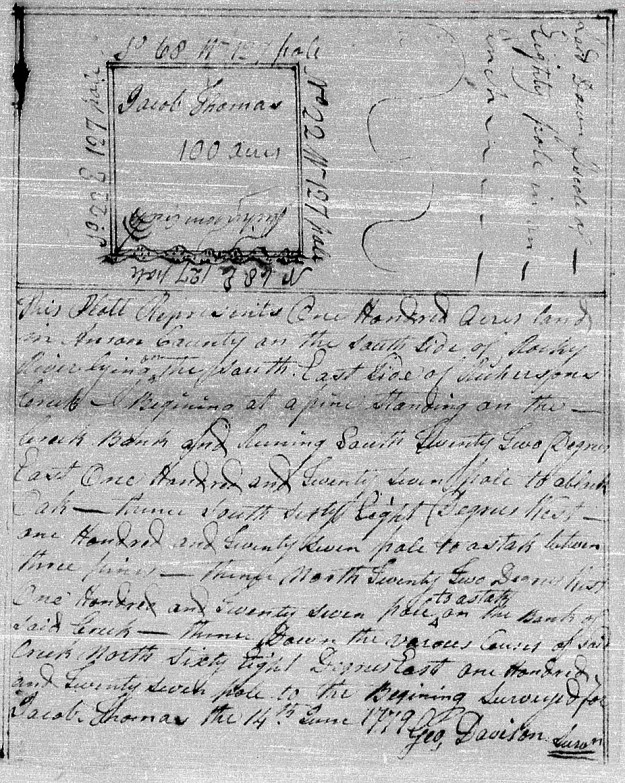 So 68 Wt 127 pole
Jacob Thomas
100 acres
So 22 E 127 pole
No 22 Wt 127 pole
No 68 E 127 pole
Laid Down Scale of
Eighty pole in an
inch
This Plott Represents One Hundred acres land
in Anson County on the South Side of Rocky
River lying on the South East Side of Richersons
Creek — Begining at a pine Standing on the —
Creek Bank and Runing South Twenty Two Degrees
East One Hundred and Twenty Seven pole to a black
Oak — thence South Sixty Eight Degrees West —
one Hundred and Twenty Seven pole to a stak between
three pines — thence North Twenty Two Degrees West
One Hundred and Twenty Seven pole to a stake on the Bank of
Said Creek — thence Down the various Courses of Said
Creek North Sixty Eight Degrees East one Hundred
and Twenty Seven pole to the Begining Surveyed for
Jacob Thomas the 14th June 1779
Geo, Davison Survr